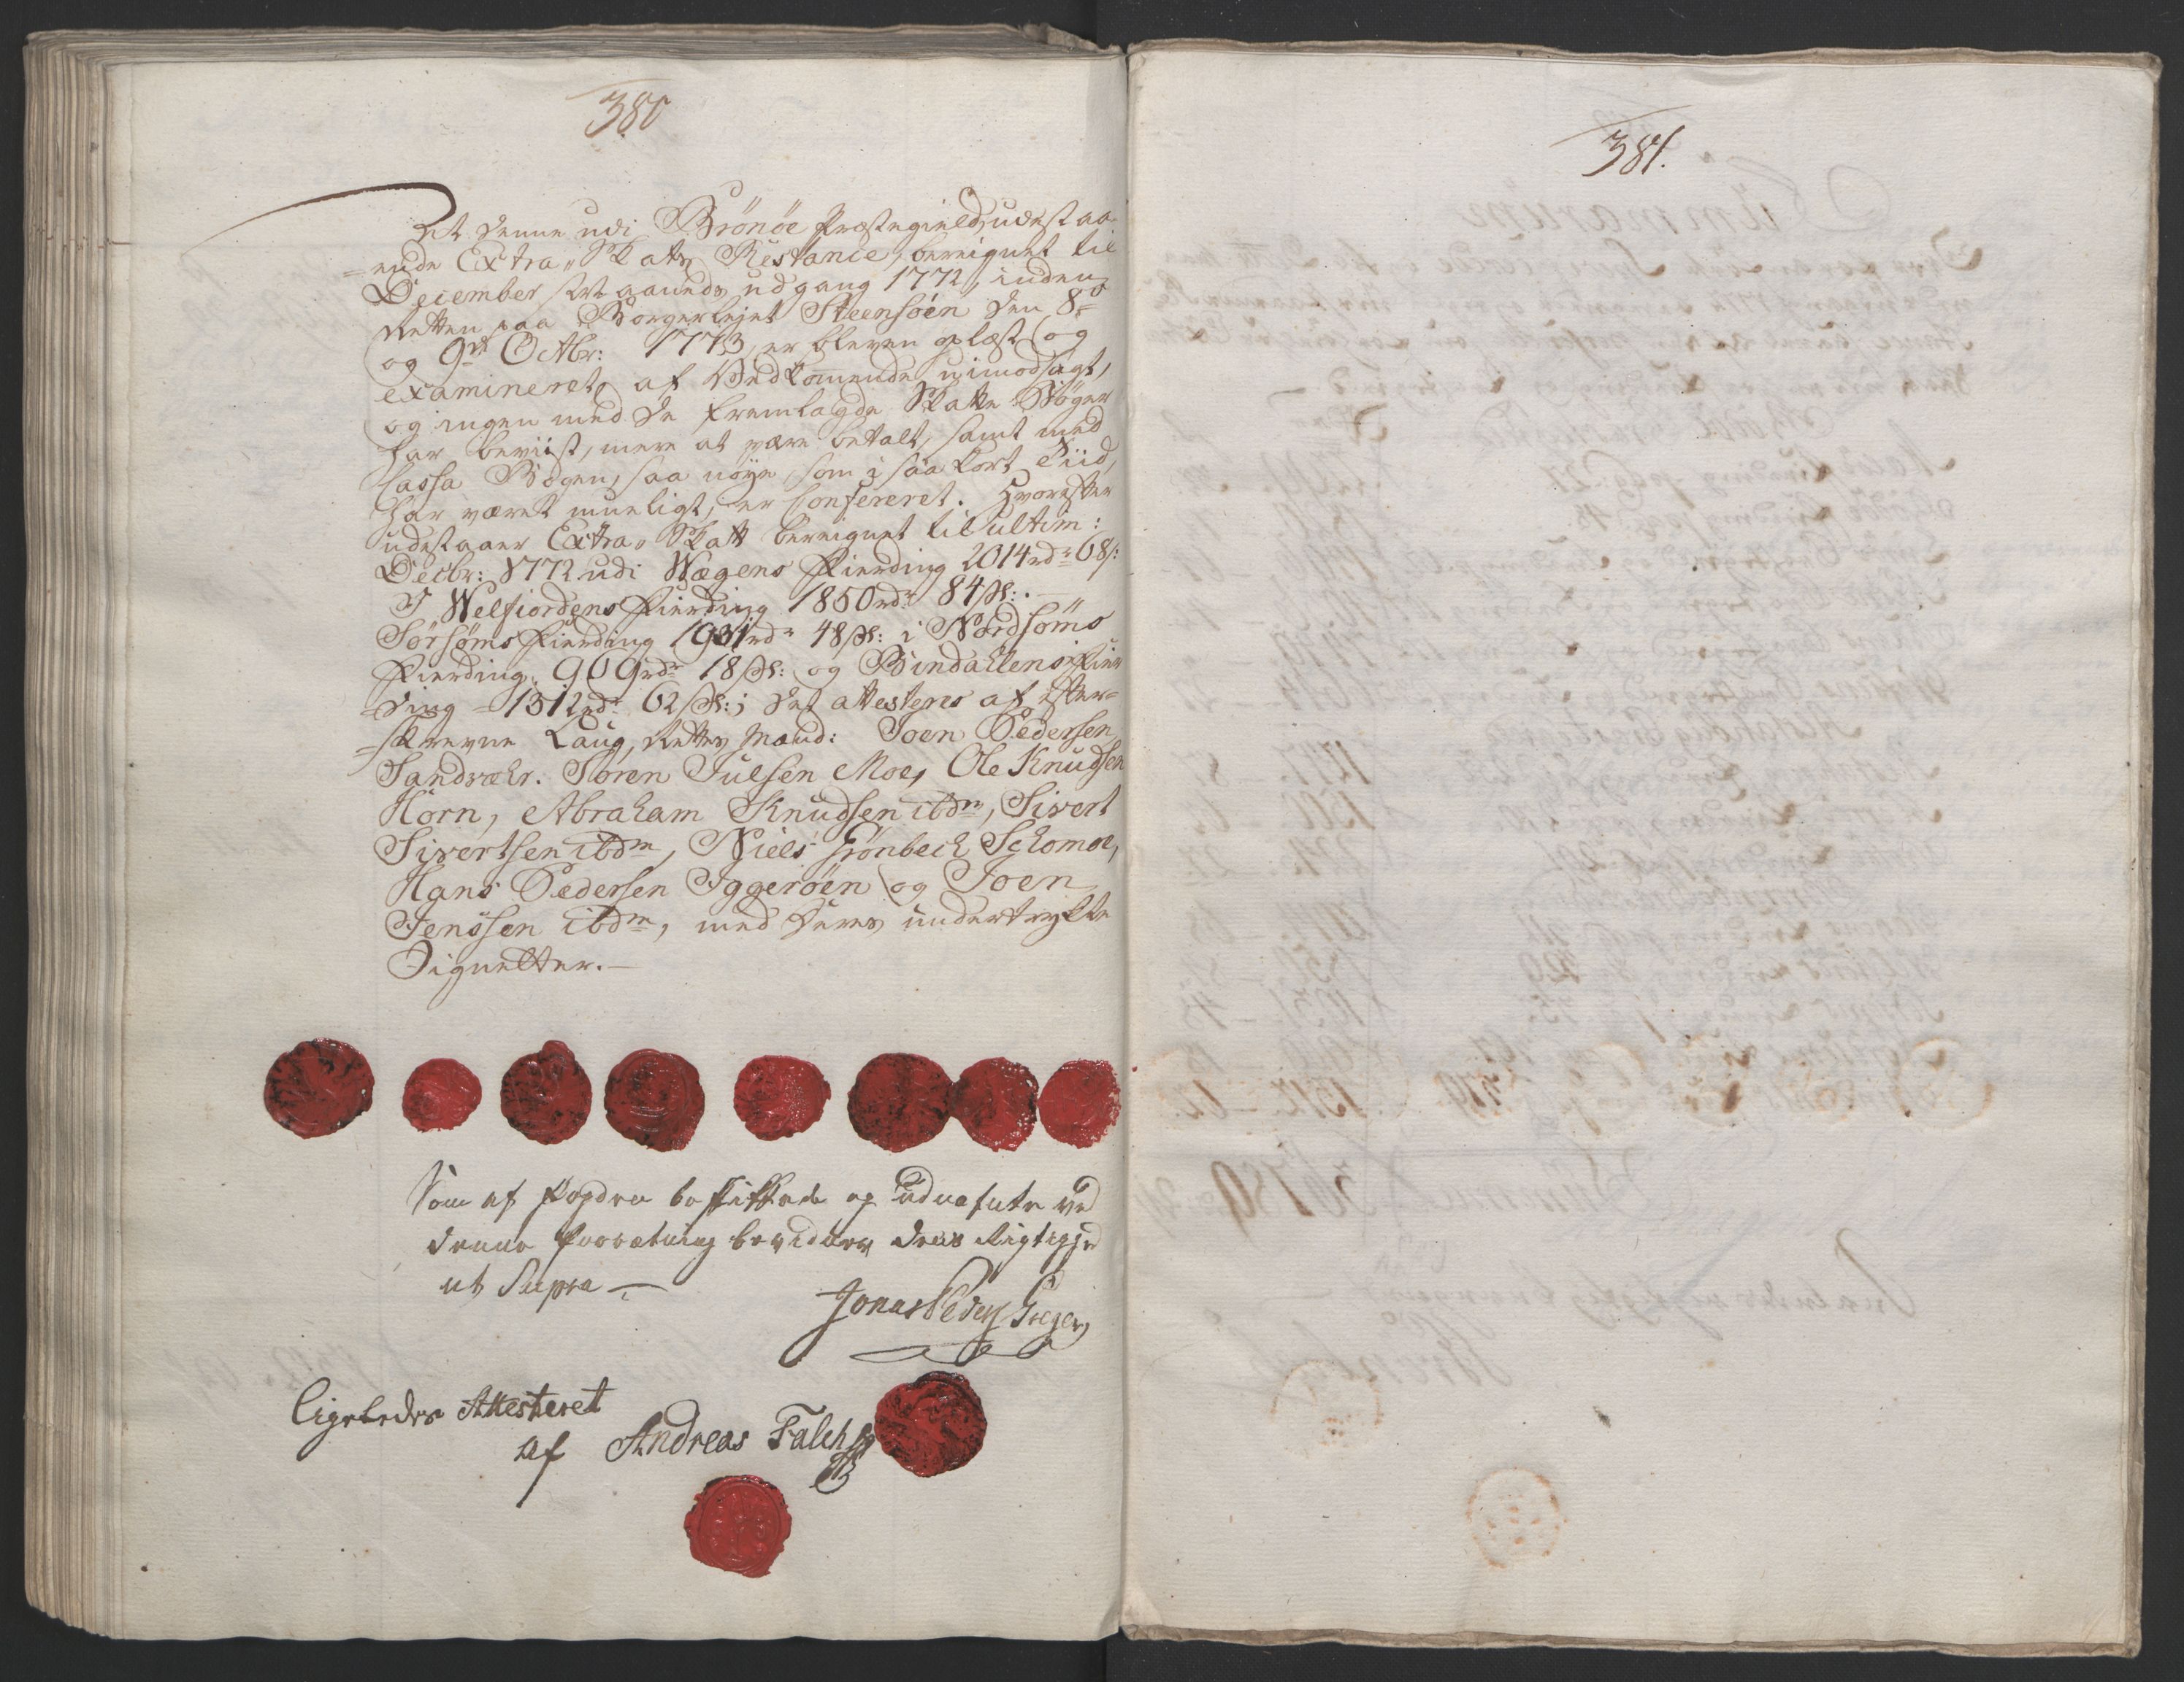 380
At denne udi Brönöe Præstegield, udestaa
=ende Extra„ Skatts Restance, bereignet til
December Maaneds udgang 1772, inden
Retten paa Borgerlejet Steensöen den 8de
og 9de Octbr: 1773, er bleven oplæst og
examineret, af Vedkommende uimodsagt,
og ingen med de fremlagde Skatte Bøger
har beviist, mere at være betalt, samt med
Cassa Bogen, saa nöye, som i saa kort Tiid,
har været mueligt, er Confereret. Hvorefter
udestaaer Extra„ Skatt bereignet til ultim:
Decbr: 1772 udi Wægens Fierding 2014rdr 68s:
I Welfiordens Fierding 1850rdr 84s:.
Sörsöms Fierding 1931rdr 48s: i Nordsöms
Fierding, 909rdr 18s: og Bindallens Fier
=ding = 1312rdr 62s:; det attesteres af efter=
=skrevne Laug, Rettes Mænd: Joen Pedersen
Sandvær. Sören Julsen Moe, Ole Knudsen
Horn, Abraham Knudsen ibdm, Sivert
Sivertsen ibdm, Niels Grönbech Schomoe,
Hans Pedersen Iggeröen og Joen
Jenssen ibdm, med deres undertrykte
Signetter.—
Som af Fogden beskikkede og udnæfnte ved
denne Forretning bevidner dens Rigtighed
ut Supra —
Jonas Peders
Ligeledes Attesteret
af Andreas Falch
381.